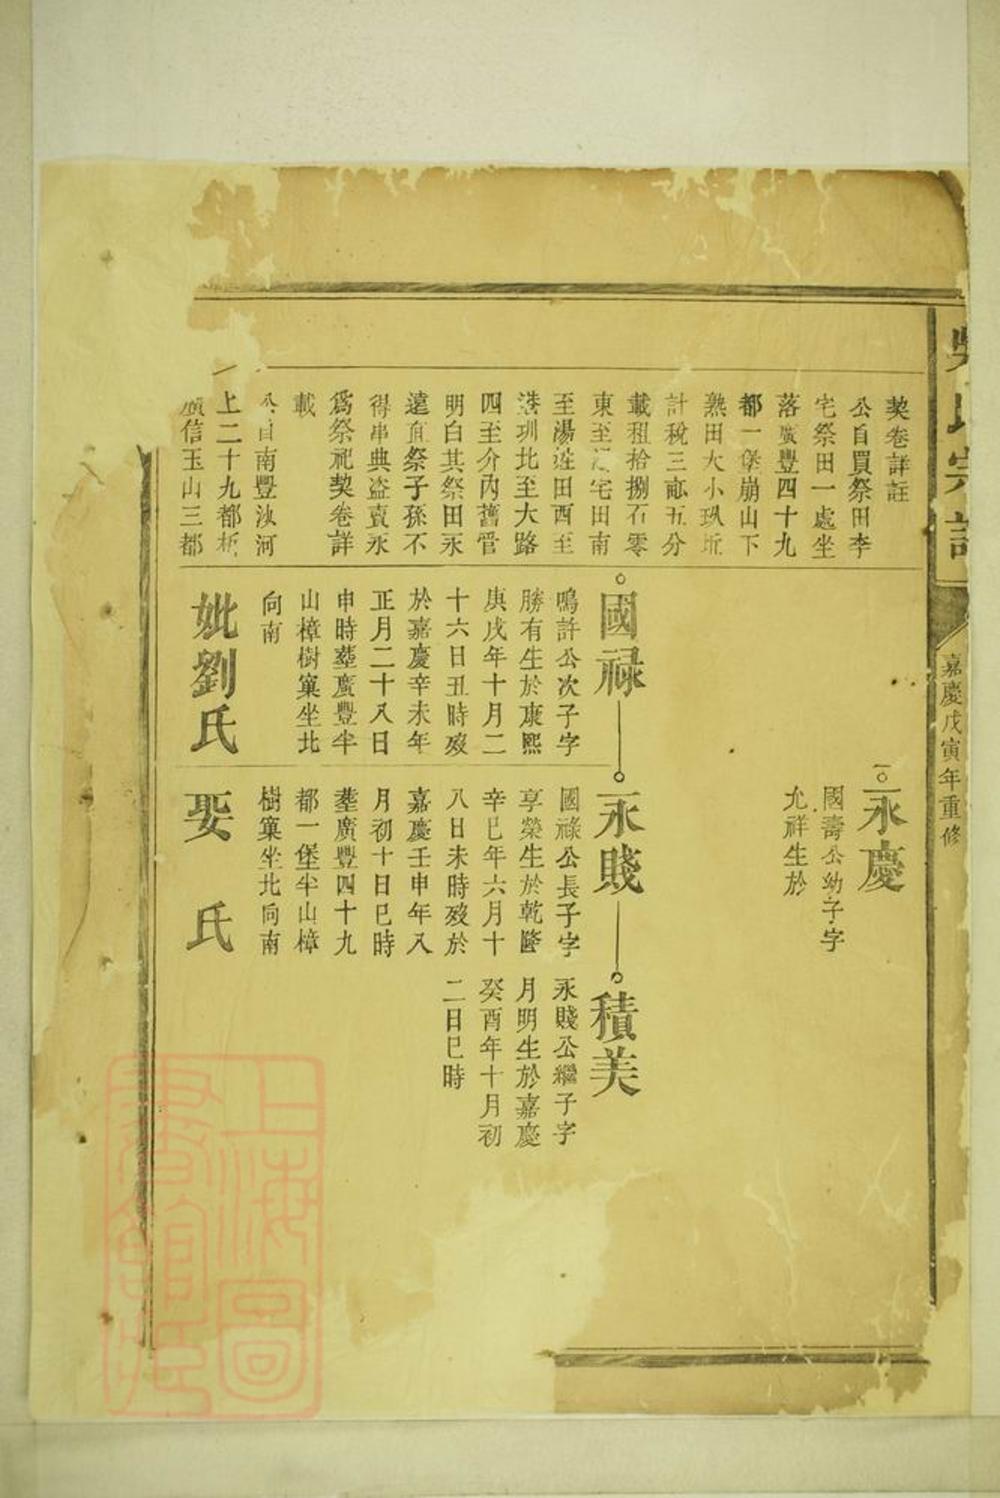 嘉慶戊寅年重修
契卷詳註
公自買祭田李
宅祭田一處坐
落廣豐四十九
都一堡崩山下
熟田大小坵
計稅三畝五分
載租拾捌石零
東至宅田南
至湯姓田西至
港圳北至大路
四至介內舊管
明白其祭田永
遠直祭子孫不
得串典盗賣永
爲祭祀契卷詳
載
公自南豐河
上二十九都
廣信玉山三都
永慶
國壽公幼子字
允祥生於
國禄
鳴許公次子字
勝有生於康熙
庚戌年十月二
十六日丑時歿
於嘉慶辛未年
正月二十八日
申時塟廣豐半
山樟樹窠坐北
向南
妣劉氏
永賤
國祿公長子字
享榮生於乾隆
辛巳年六月十
八日未時歿於
嘉慶壬申年八
月初十日巳時
塟廣豐四十九
都一堡半山樟
樹窠坐北向南
娶 氏
積美
永賤公繼子字
月明生於嘉慶
癸酉年十月初
二日巳時
上海圖
書館藏